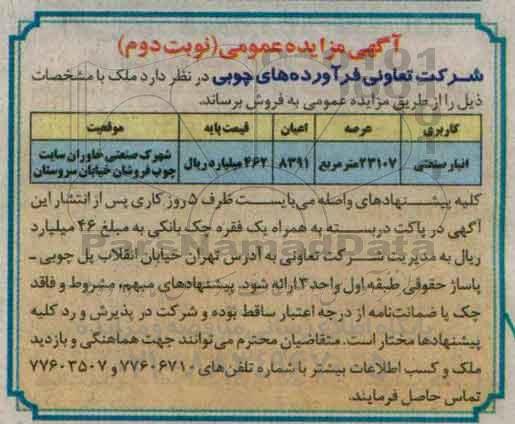 آگهی مزایده عمومی (نوبت دوم)
شرکت تعاونی فرآورده‌های چوبی در نظر دارد ملک با مشخصات
ذیل را از طریق مزایده عمومی به فروش برساند.
کاربری عرصه اعیان قیمت پایه موقعیت
انبار صنعتی ۲۳۱۰۷ متر مربع ۸۳۹۱ ۴۶۲ میلیارد ریال شهرک صنعتی خاوران سایت
چوب فروشان خیابان سروستان
کلیه پیشنهادهای واصله می‌بایست ظرف ۵ روز کاری پس از انتشار این
آگهی در پاکت دربسته به همراه یک فقره چک بانکی به مبلغ ۴۶ میلیارد
ریال به مدیریت شرکت تعاونی به آدرس تهران خیابان انقلاب پل چوبی ـ
پاساژ حقوقی طبقه اول واحد ۳ ارائه شود. پیشنهادهای مبهم، مشروط و فاقد
چک یا ضمانت‌نامه از درجه اعتبار ساقط بوده و شرکت در پذیرش و رد کلیه
پیشنهادها مختار است. متقاضیان محترم می‌توانند جهت هماهنگی و بازدید
ملک و کسب اطلاعات بیشتر با شماره تلفن‌های ۷۷۶۰۶۷۱۰ و ۷۷۶۰۳۵۰۷
تماس حاصل فرمایند.
ParsNamadData